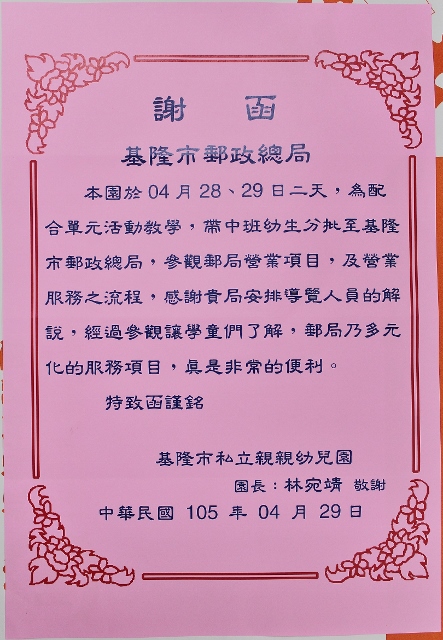 謝 函
基隆市郵政總局
本園於 04 月 28、29 日二天，為配
合單元活動教學，帶中班幼生分批至基隆
市郵政總局，參觀郵局營業項目，及營業
服務之流程，感謝貴局安排導覽人員的解
說，經過參觀讓學童們了解，郵局乃多元
化的服務項目，真是非常的便利。
特致函謹銘
基隆市私立親親幼兒園
園長：林宛靖 敬謝
中華民國 105 年 04 月 29 日